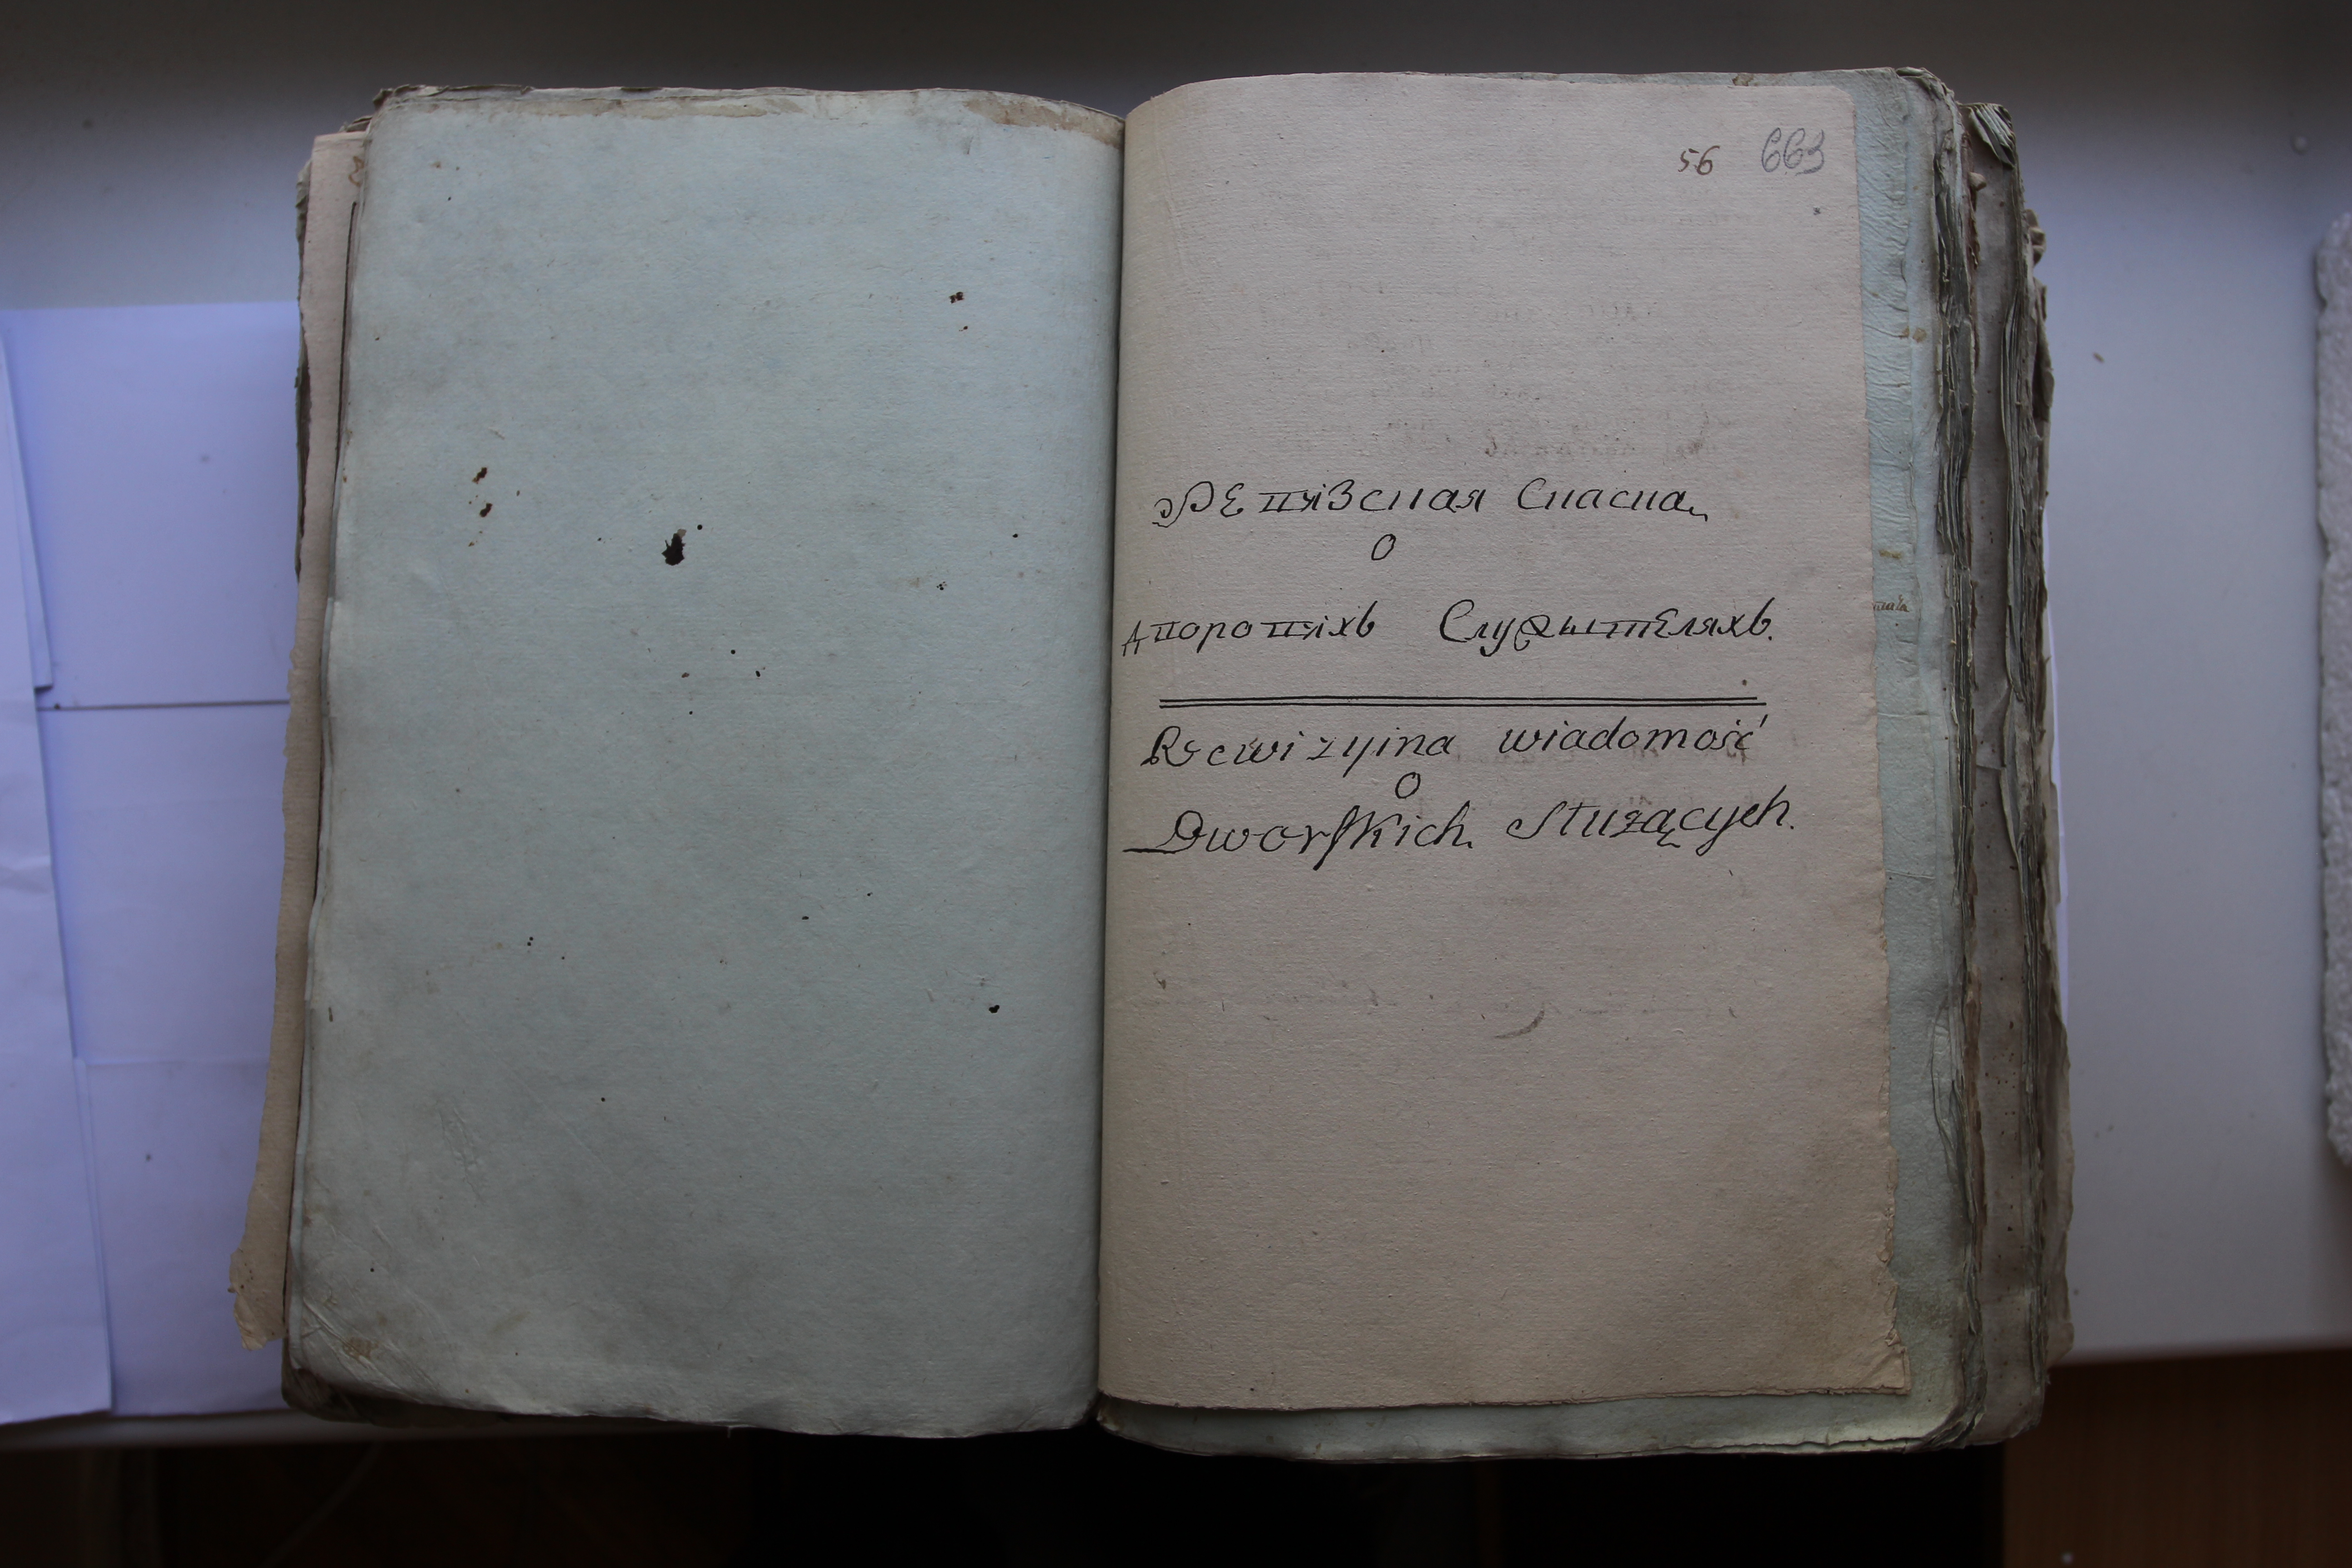 56 663
Ревизская Сказка
о
дворовыхъ Служытеляхъ.
Rewizyina wiadomość
o
Dworskich Służących.